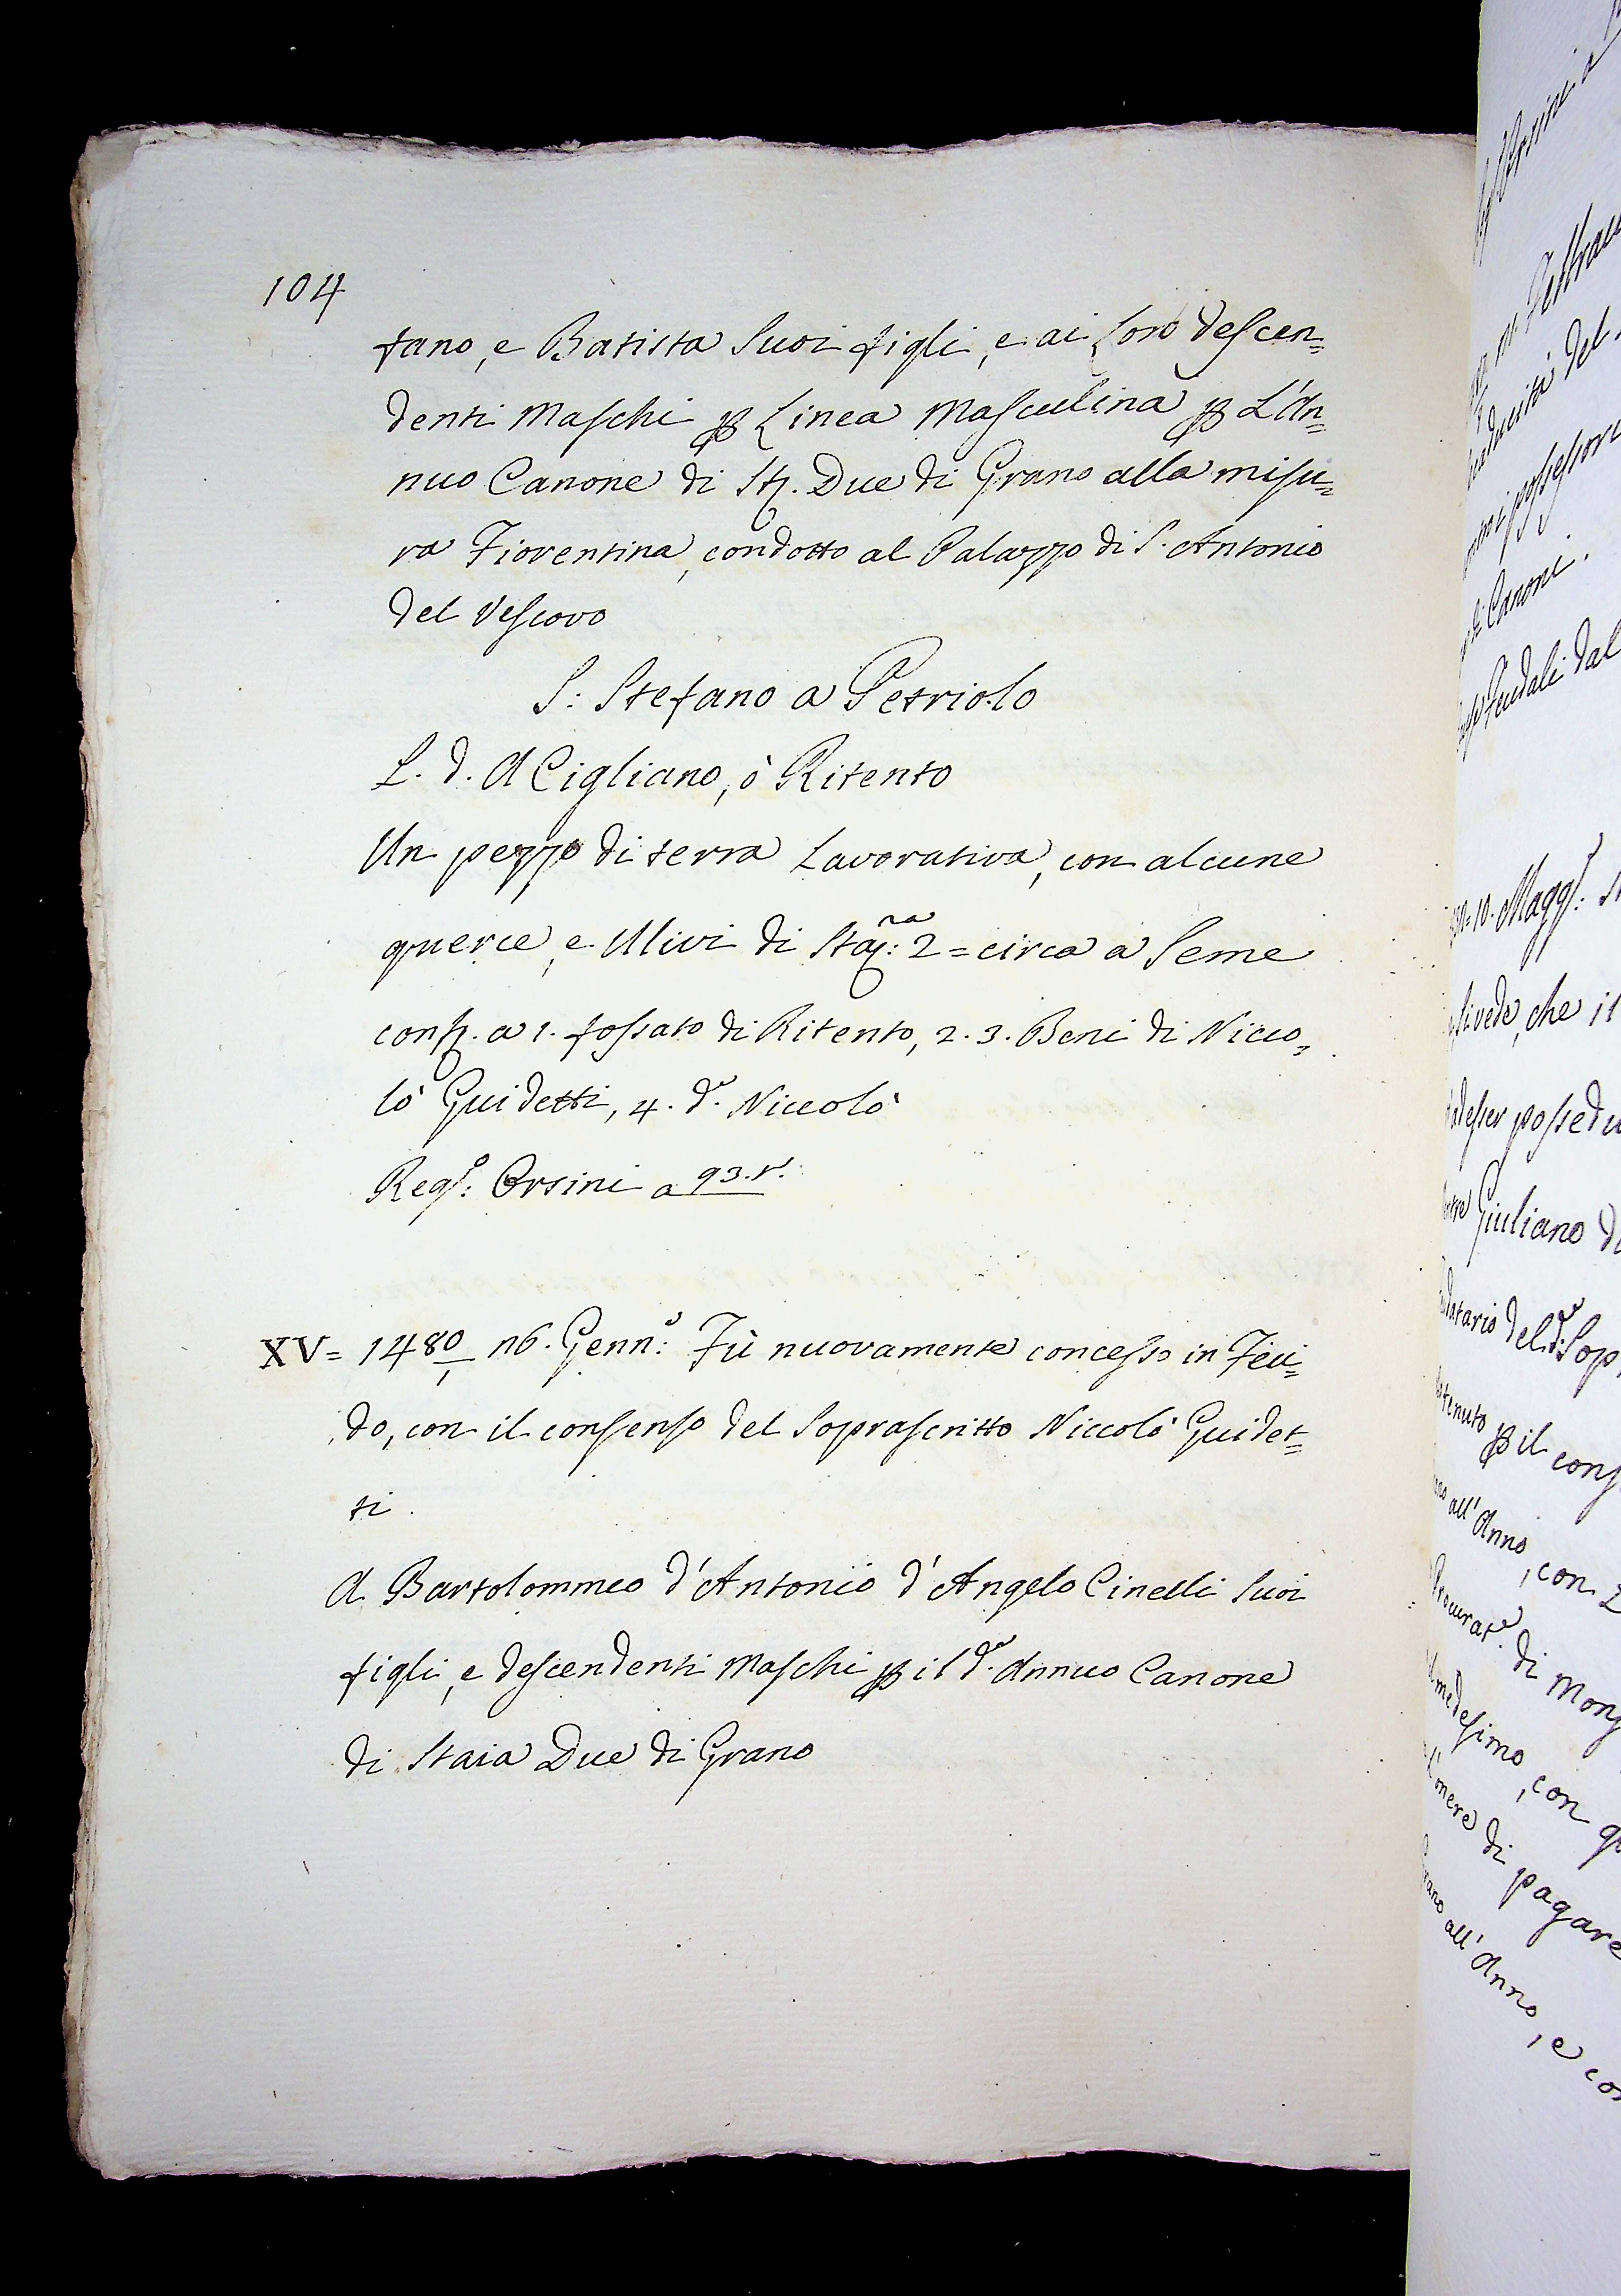 104
fano, e Batista Suoi figli, e ai Loro descen=
denti Maschi ꝑ Linea Masculina ꝑ L'An=
nuo Canone di Stj. Due di Grano alla misu=
ra Fiorentina, condotto al Palazzo di S. Antonio
del Vescovo
S: Stefano a Petriolo
L. d. A Cigliano, ò Ritento
Un pezzo di terra Lavorativa, con alcune
querce, e Ulivi di Staj:ra 2= circa a Seme
conf. a 1. fossato di Ritento, 2. 3. Beni di Nicco=
lò Guidetti, 4. do. Niccolò
Rego: Orsini a 93.t.
XV= 1480 16. Genno: Fù nuovamente concesso in Feu=
do, con il consenso del Soprascritto Niccolò Guidet=
ti.
A Bartolommeo d'Antonio d'Angelo Cinelli Suoi
figli, e descendenti Maschi ꝑ il do. Annuo Canone
di Staia Due di Grano
10. Maggo:
si vede, che il
Giuliano
ꝑ il
all'Anno, con
di Mon
medesimo, con
di pagare
all'Anno, e